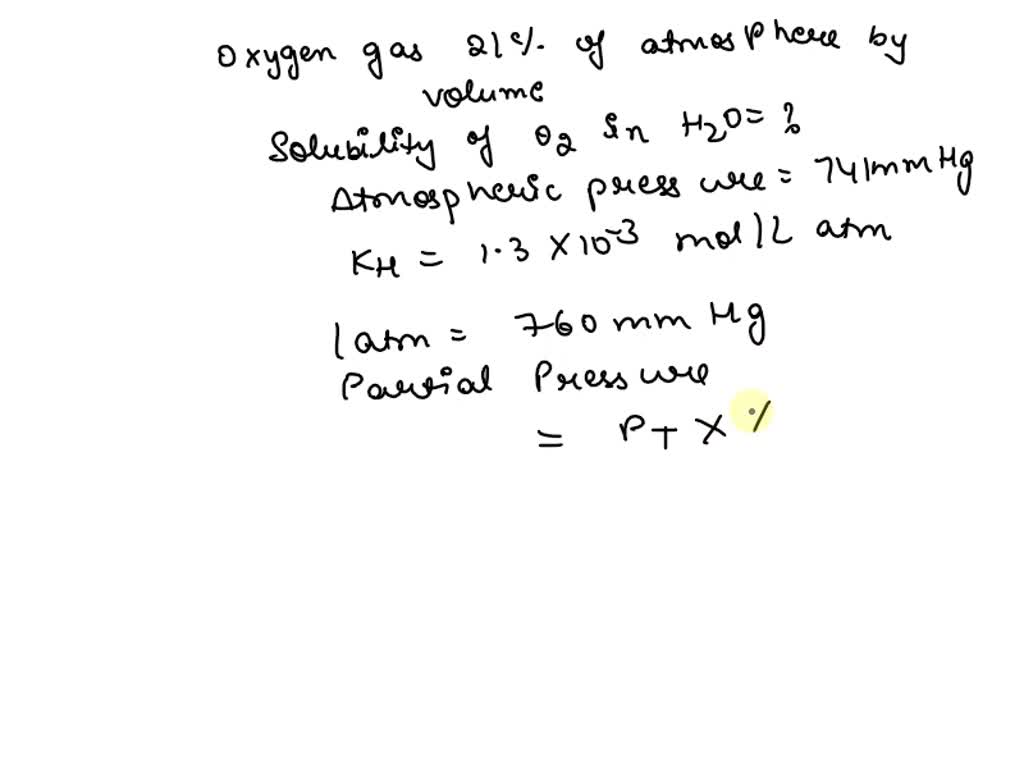 Oxygen gas 21% of atmosphere by
volume
Solubility of O2 in H2O = ?
Atmospheric pressure = 741mmHg
KH = 1.3 X10-3 mol/L atm
1 atm = 760 mm Hg
Partial Pressure
= PT X %